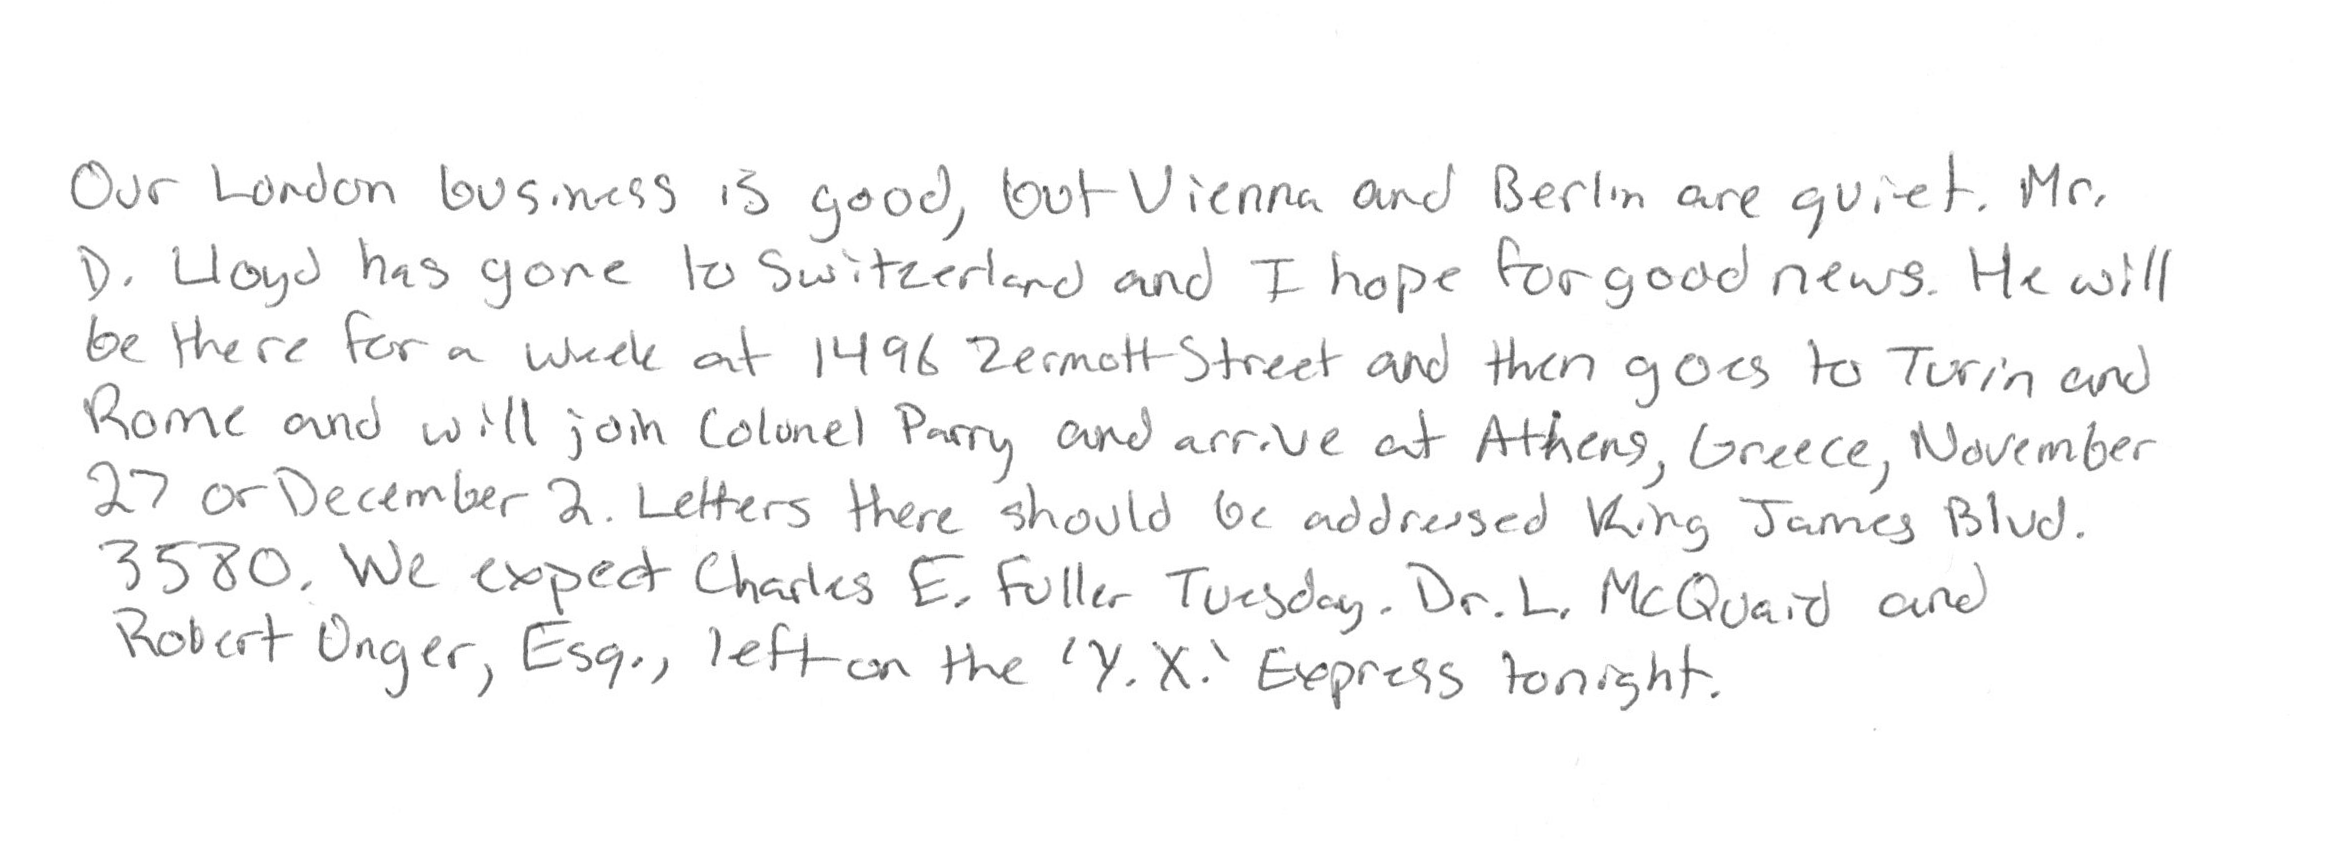 Our London business is good, but Vienna and Berlin are quiet. Mr.
D. Lloyd has gone to Switzerland and I hope for good news. He will
be there for a week at 1496 Zermott Street and then goes to Turin and
Rome and will join Colonel Parry and arrive at Athens, Greece, November
27 or December 2. Letters there should be addressed King James Blvd.
3580. We expect Charles E. Fuller Tuesday. Dr. L. McQuaid and
Robert Unger, Esq., left on the 'Y. X.' Express tonight.